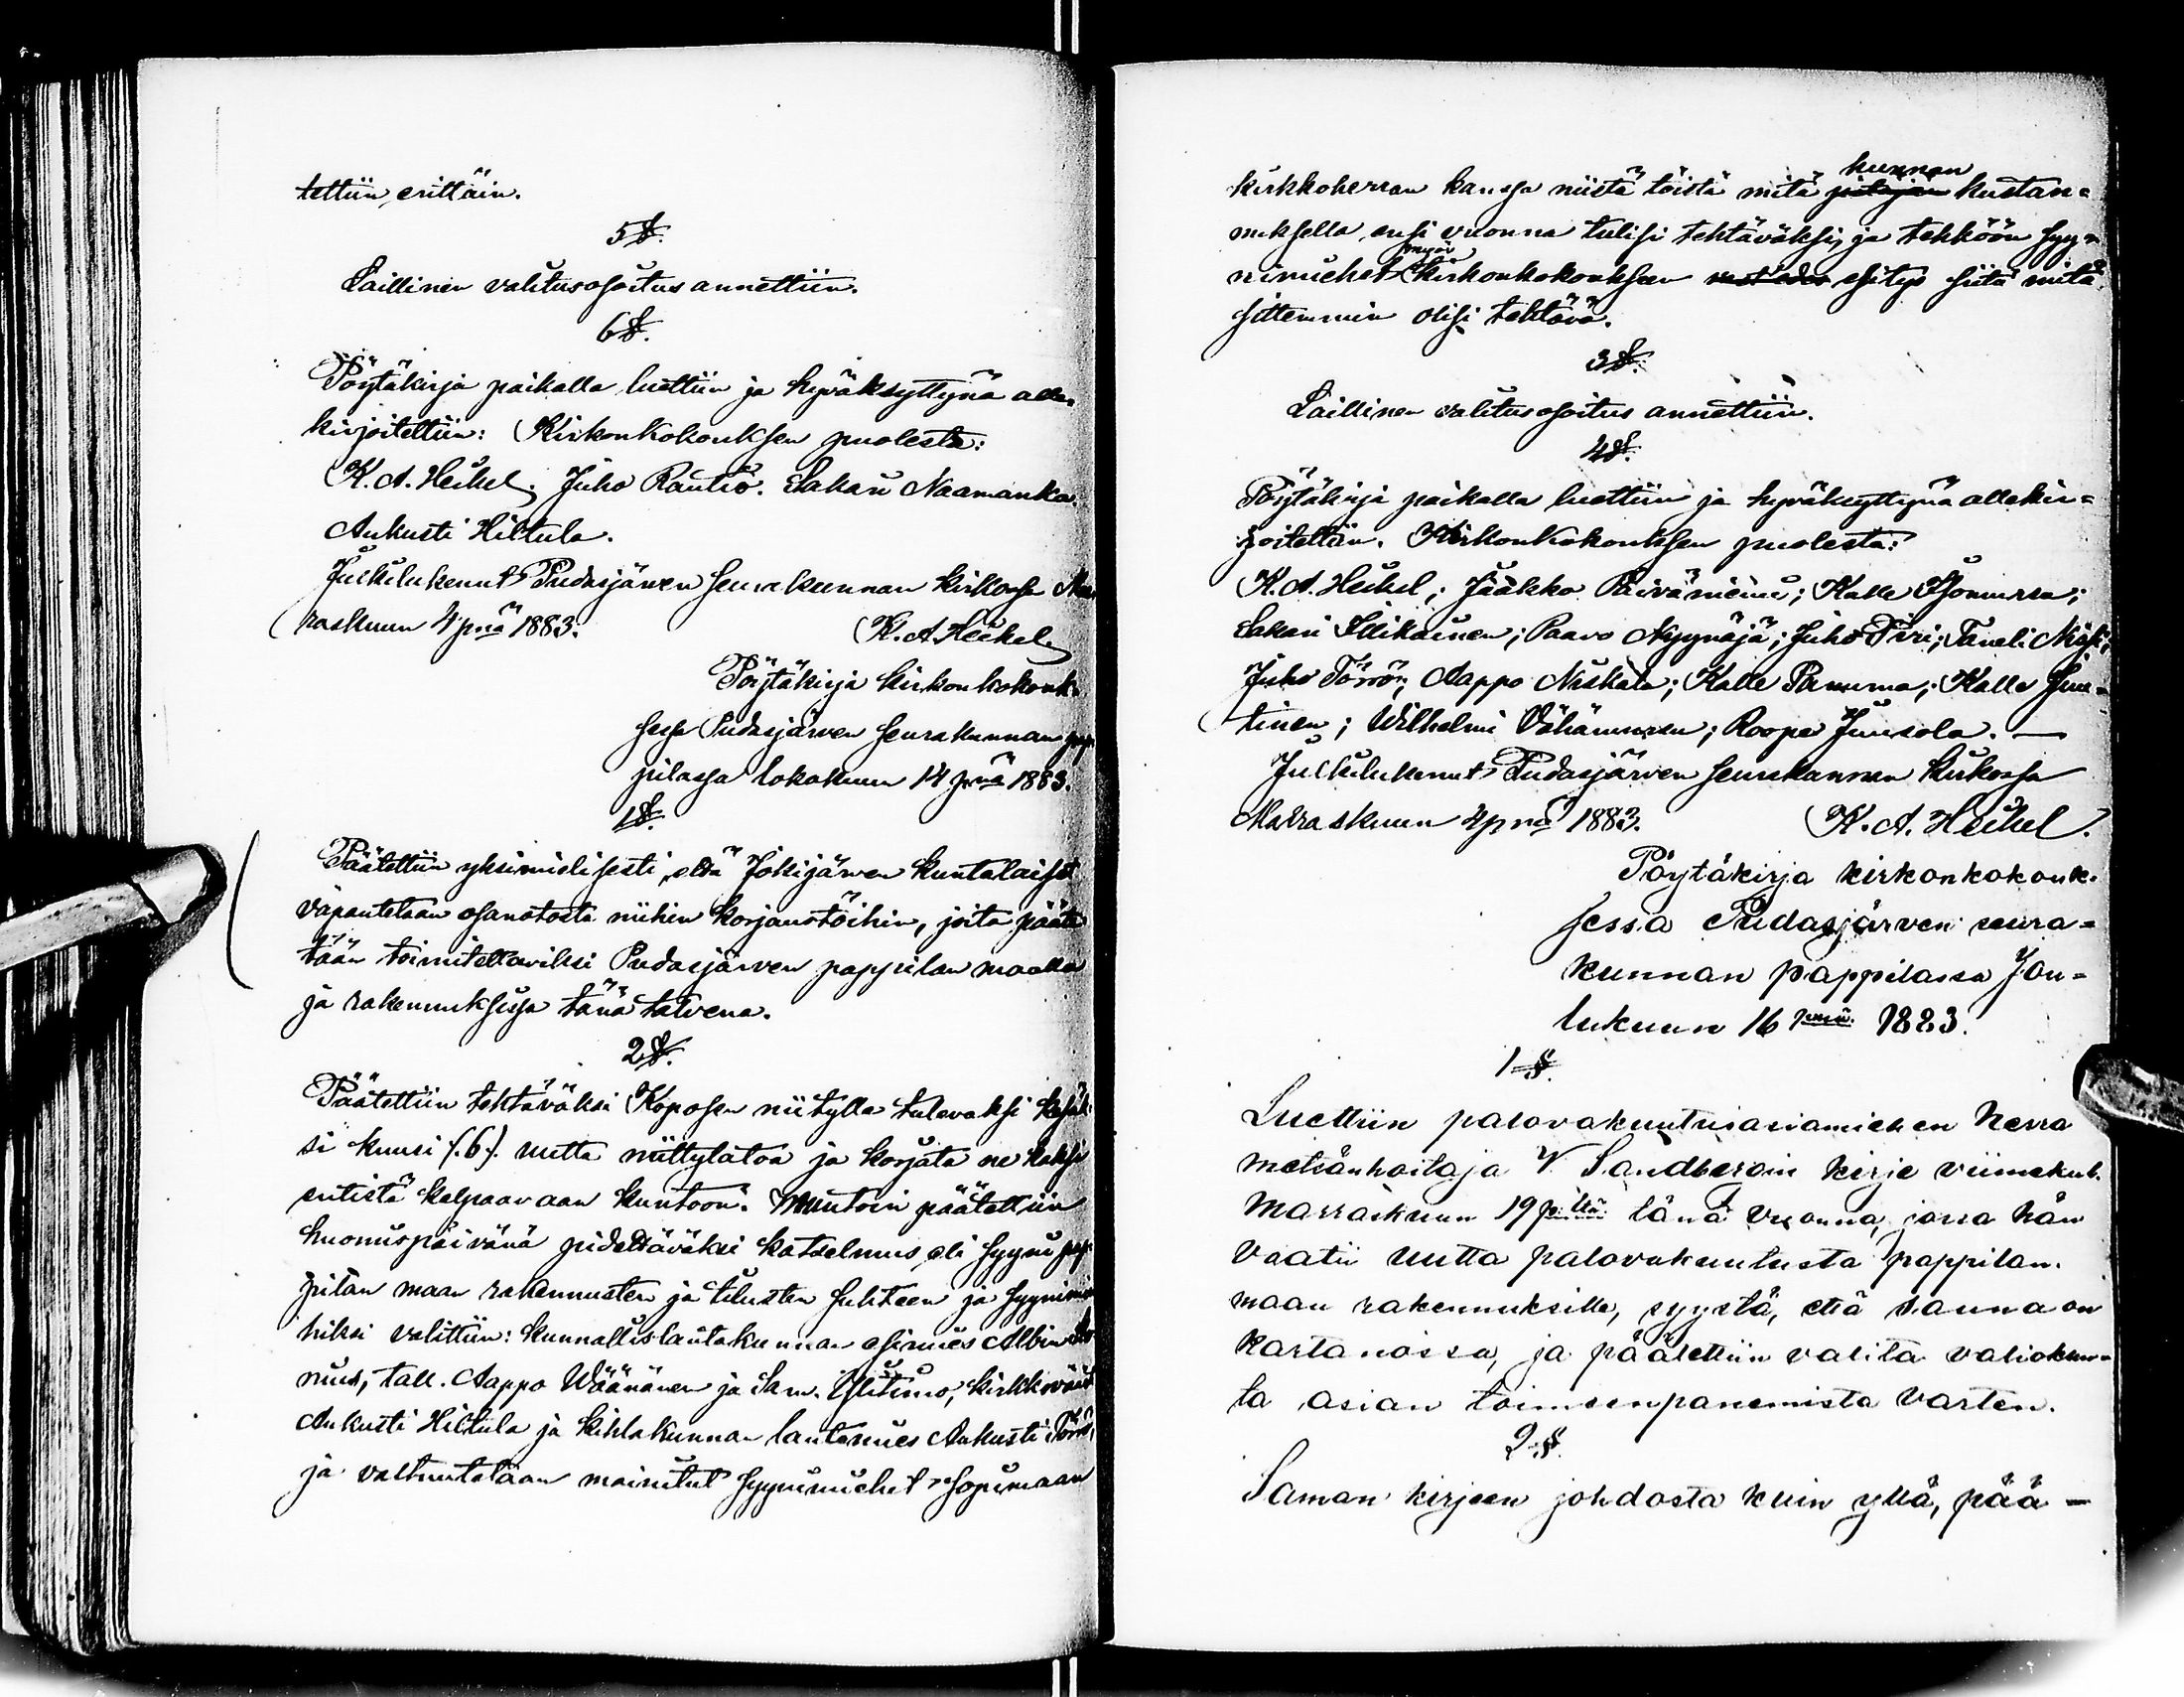 tettiin erittäin.
5 §.
Laillinen valitusosoitus annettiin.
6 §.
Pöytäkirja paikalla luettiin ja hyväksyttynä alle-
kirjoitettiin: Kirkonkokouksen puolesta:
K. A. Heikel; Juho Rautio. Sakari Naamanka.
Aukusti Hiltula.
Julkilukenut Pudasjärwen seurakunnan kirkossa
raskuun 4 pnä 1883. K. A. Heikel
Pöytäkirja kirkonkokouk-
sessa Pudasjärwen seurakunnan pap-
pilassa lokakuun 14 pnä 1883.
1 §.
Päätettiin yksimielisesti, että Jokijärwen kuntalaiset
vapautetaan osanotosta niihin korjaustöihin, joita pääte
tään toimitettaviksi Pudasjärwen pappilan maalla
ja rakennuksissa tänä talvena.
2 §.
Päätettiin tehtäväksi Koposen niitylle tulevaksi kesäk-
si kuusi (:6:) uutta niittylatoa ja korjata ne kaksi
entistä kelpaavaan kuntoon. Muutoin päätettiin
huomispäivänä pidettäväksi katselmus eli syyni pap-
pilan maan rakennusten ja tilusten suhteen ja syynimie
hiksi valittiin: kunnallislautakunnan esimies Albin
nius, tall. Aappo Wäänänen ja Sam. Ylitimo, kirkkoväärt
Aukusti Hiltula ja kihlakunnan lautamies Aukusti Törrö,
ja valtuutetaan mainitut syynimiehet sopimaan
kirkkoherran kanssa niistä töistä mitä pitäjän kunnan kustan-
nuksella ensi vuonna tulisi tehtäväksi, ja tehköön syy-
nimiehet myös kirkonkokouksen esitys siitä mitä
sittemmin olisi tehtävä.
3 §.
Laillinen valitusosoitus annettiin.
4 §.
Pöytäkirja paikalla luettiin ja hyväksyttynä allekir-
joitettiin. Kirkonkokouksen puolesta:
K. A. Heikel; Jaakko Päiväniemi; Kalle Isomursu;
Sakari Illikainen; Paavo Nyynäjä; Juho Piri; Taneli
Juho Törrö; Aappo Niskala; Kalle Panuma; Kalle Juu-
tinen; Wilhelmi Vähämursu; Roope Juusola. —
Julkilukenut Pudasjärwen seurakunnan kirkossa
Marraskuun 4 pnä 1883. K. A. Heikel.
Pöytäkirja kirkonkokouk-
sessa Pudasjärven seura-
kunnan pappilassa Jou-
lukuun 16 pnä 1883.
1 §.
Luettiin palovakuutusasiamiehen Herra
metsänhoitaja V Sandbergin kirje viimekul.
Marraskuun 19 p:ltä tänä vuonna, jossa hän
vaatii uutta palovakuutusta pappilan
maan rakennuksille, syystä, että sauna on
kartanoissa, ja päätettiin valita valiokun-
ta asian toimeenpanemista varten.
2 §.
Saman kirjeen johdosta kuin yllä, pää-